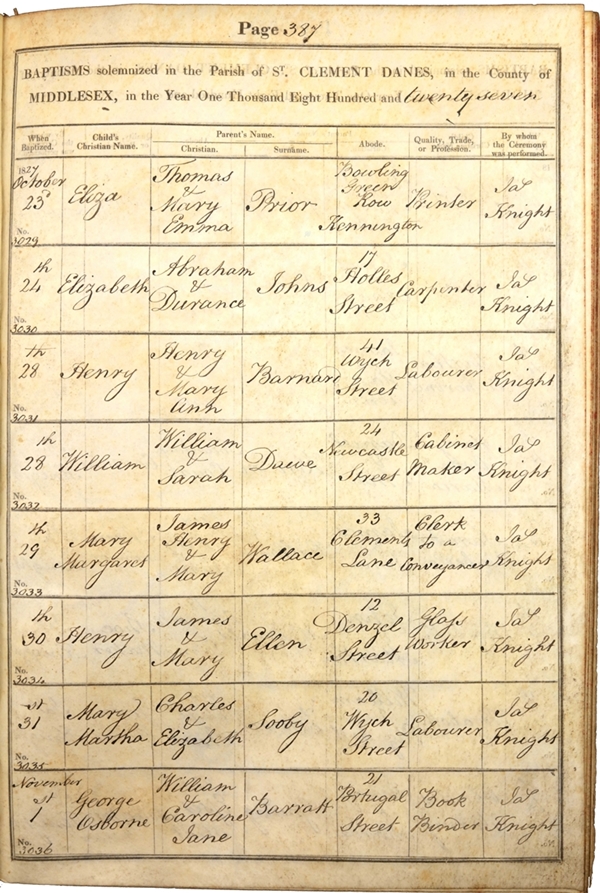 Page 387
BAPTISMS solemnized in the Parish of ST. CLEMENT DANES, in the County of
MIDDLESEX, in the Year One Thousand Eight Hundred and twenty seven
When Baptized. Child's Christian Name. Parent's Name. Christian. Surname. Abode. Quality, Trade, or Profession. By whom the Ceremony was performed.
1827 October 23d No. 3029 Eliza Thomas & Mary Emma Prior Bowling Green Row Kennington Printer Jas Knight
24th No. 3030 Elizabeth Abraham & Durance Johns 17 Holles Street Carpenter Jas Knight
28th No. 3031 Henry Henry & Mary Ann Barnard 41 Wych Street Labourer Jas Knight
28th No. 3032 William William & Sarah Dawe 24 Newcastle Street Cabinet Maker Jas Knight
29th No. 3033 Mary Margaret James Henry & Mary Wallace 33 Clements Lane Clerk to a Conveyancer Jas Knight
30th No. 3034 Henry James & Mary Ellen 12 Denzel Street Glass Worker Jas Knight
31st No. 3035 Mary Martha Charles & Elizabeth Sooby 20 Wych Street Labourer Jas Knight
November 1st No. 3036 George Osborne William & Caroline Jane Barratt 21 Portugal Street Book Binder Jas Knight